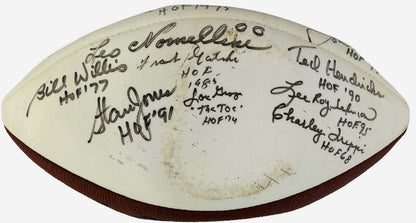 HOF 1975
Leo Nomellini
Bill Willis
HOF '77
Frank Gatski
HOF
1985
Stan Jones
HOF '91
Lou Groza
"The Toe"
HOF 74
HOF
Ted Hendricks
HOF '90
Lee Roy Selmon
HOF 95
Charley Trippi
HOF 68